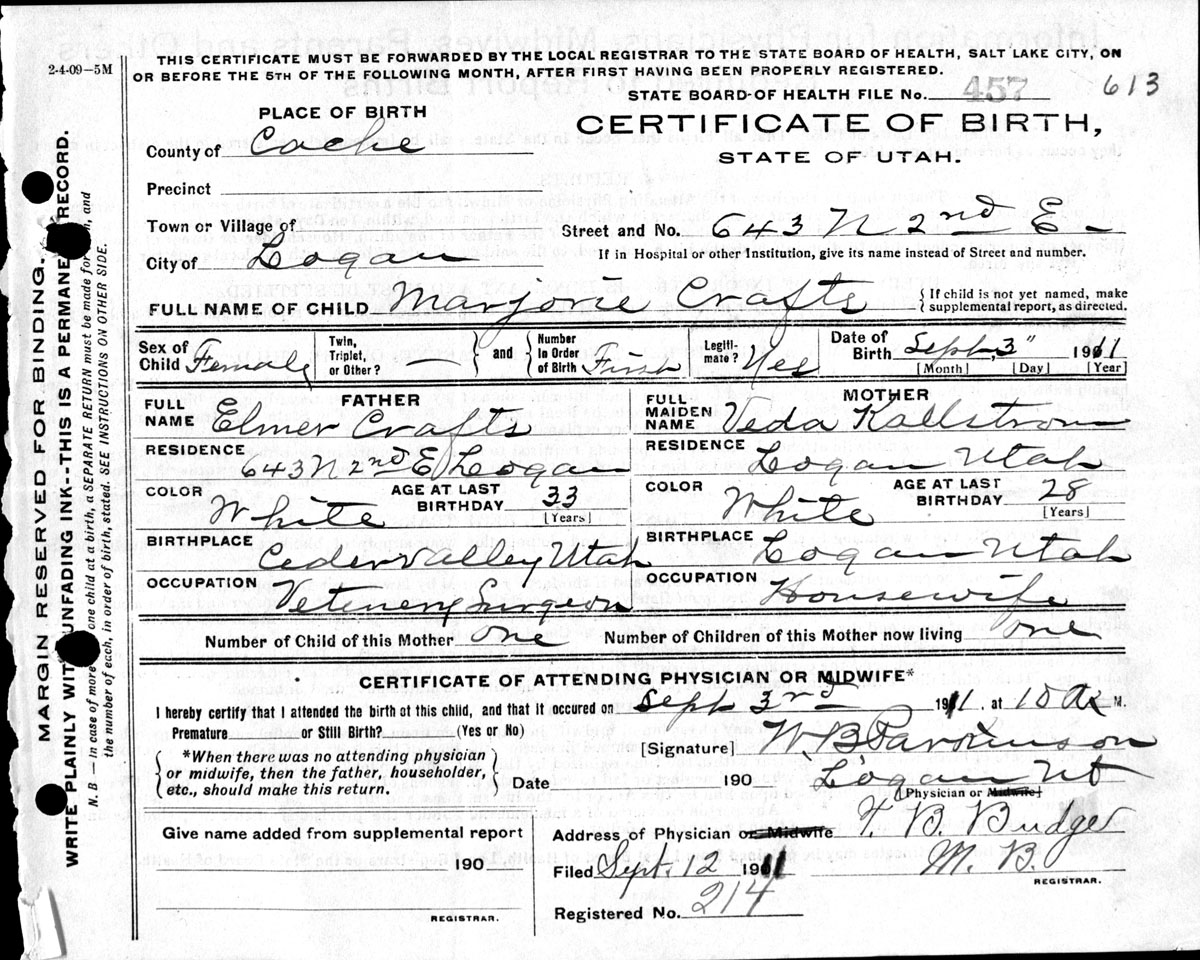 2-4-09—5M
THIS CERTIFICATE MUST BE FORWARDED BY THE LOCAL REGISTRAR TO THE STATE BOARD OF HEALTH, SALT LAKE CITY, ON
OR BEFORE THE 5TH OF THE FOLLOWING MONTH, AFTER FIRST HAVING BEEN PROPERLY REGISTERED.
STATE BOARD OF HEALTH FILE No. 457 613
PLACE OF BIRTH
CERTIFICATE OF BIRTH,
STATE OF UTAH.
County of Cache
Precinct
Town or Village of
Street and No. 643 N 2nd E
City of Logan
If in Hospital or other Institution, give its name instead of Street and number.
FULL NAME OF CHILD Marjorie Crafts { If child is not yet named, make supplemental report, as directed.
Sex of Child Female Twin, Triplet, or Other? — } and { Number In Order of Birth First Legiti-mate? Yes Date of Birth Sept, 3" 1911
[Month] [Day] [Year]
FATHER
FULL NAME Elmer Crafts
RESIDENCE 643 N 2nd E Logan
COLOR White AGE AT LAST BIRTHDAY 33 [Years]
BIRTHPLACE Ceder valley Utah
OCCUPATION Vetenery Surgeon
MOTHER
FULL MAIDEN NAME Veda Kallstrom
RESIDENCE Logan Utah
COLOR White AGE AT LAST BIRTHDAY 28 [Years]
BIRTHPLACE Logan Utah
OCCUPATION Housewife
Number of Child of this Mother one Number of Children of this Mother now living one
CERTIFICATE OF ATTENDING PHYSICIAN OR MIDWIFE*
I hereby certify that I attended the birth of this child, and that it occured on Sept 3rd 1911, at 10 A M.
Premature or Still Birth? (Yes or No)
[Signature] W. B Parkinson
{ *When there was no attending physician
or midwife, then the father, householder,
etc., should make this return. }
Date 190 Logan Ut
(Physician or Midwife)
Give name added from supplemental report
190
REGISTRAR.
Address of Physician or Midwife T. B. Budge
Filed Sept. 12 1911 M. B.
REGISTRAR.
Registered No. 214
MARGIN RESERVED FOR BINDING.
WRITE PLAINLY WITH UNFADING INK--THIS IS A PERMANENT RECORD.
N. B. — In case of more one child at a birth, a SEPARATE RETURN must be made for, and
the number of each, in order of birth, stated. SEE INSTRUCTIONS ON OTHER SIDE.